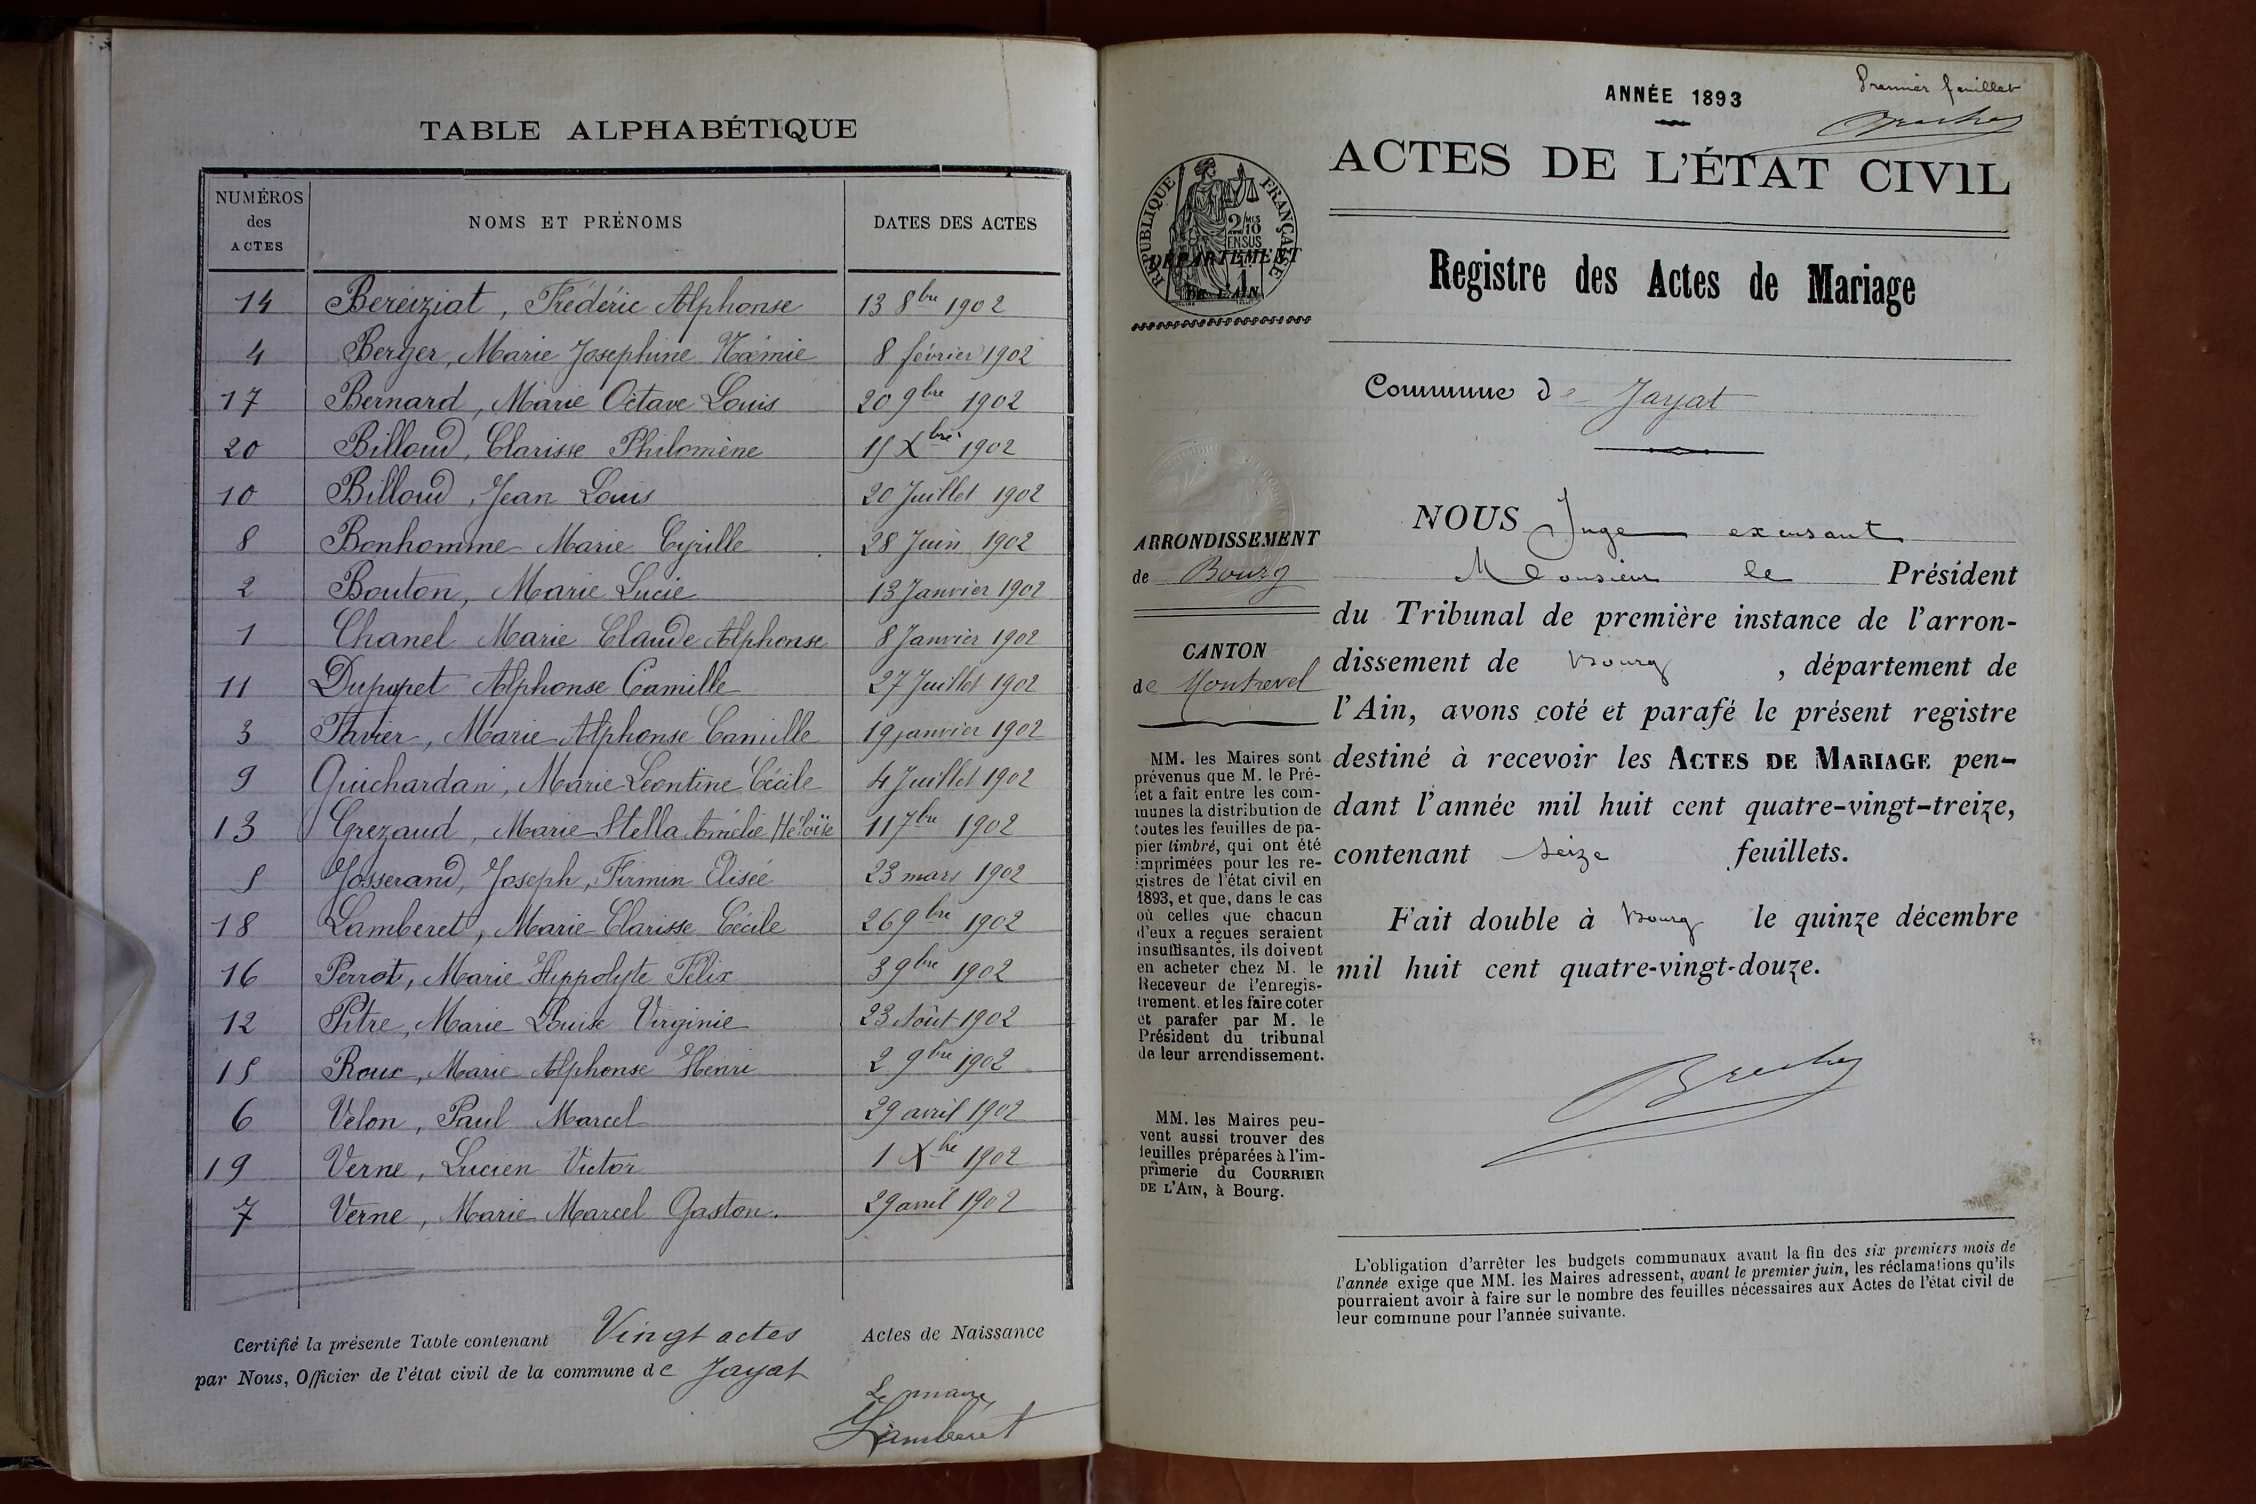 TABLE ALPHABÉTIQUE
NUMÉROS des ACTES NOMS ET PRÉNOMS DATES DES ACTES
14 Beréiziat, Frédéric Alphonse 13 8bre 1902
4 Berger, Marie Josephine Noémie 8 février 1902
17 Bernard, Marie Octave Louis 20 9bre 1902
20 Billoud, Clarisse Philomène 15 Xbre 1902
10 Billoud, Jean Louis 20 Juillet 1902
8 Bonhomme Marie Cyrille 28 Juin 1902
2 Bouton, Marie Lucie 13 Janvier 1902
1 Chanel Marie Claude Alphonse 8 Janvier 1902
11 Dupupet Alphonse Camille 27 Juillet 1902
3 Marie Alphonse Camille 19 janvier 1902
9 Guichardan, Marie Léontine Cécile 4 Juillet 1902
13 Grezaud, Marie Stella Amélie Héloïse 11 7bre 1902
5 Josserand, Joseph, Firmin Elisée 23 mars 1902
18 Lamberet, Marie Clarisse Cécile 26 9bre 1902
16 Perrot, Marie Hippolyte Félix 3 9bre 1902
12 Pitre, Marie Louise Virginie 23 Août 1902
15 Roux, Marie Alphonse Henri 2 9bre 1902
6 Velon, Paul Marcel 29 avril 1902
19 Verne, Lucien Victor 1 Xbre 1902
7 Verne, Marie Marcel Gaston. 29 avril 1902
Certifié la présente Table contenant Vingt actes Actes de Naissance
par Nous, Officier de l'état civil de la commune de Jayat
Le maire
Lamberet
Premier feuillet
ANNÉE 1893
ACTES DE L'ÉTAT CIVIL
RÉPUBLIQUE FRANÇAISE
2/10 EN SUS
DÉPARTEMENT
DE L'AIN
Registre des Actes de Mariage
Commune de Jayat
ARRONDISSEMENT
de Bourg
CANTON
de Montrevel
MM. les Maires sont
prévenus que M. le Pré-
fet a fait entre les com-
munes la distribution de
toutes les feuilles de pa-
pier timbré, qui ont été
imprimées pour les re-
gistres de l'état civil en
1893, et que, dans le cas
où celles que chacun
d'eux a reçues seraient
insuffisantes, ils doivent
en acheter chez M. le
Receveur de l'enregis-
trement et les faire coter
et parafer par M. le
Président du tribunal
de leur arrondissement.
MM. les Maires peu-
vent aussi trouver des
feuilles préparées à l'im-
primerie du COURRIER
DE L'AIN, à Bourg.
NOUS Juge excusant
Monsieur le Président
du Tribunal de première instance de l'arron-
dissement de Bourg, département de
l'Ain, avons coté et parafé le présent registre
destiné à recevoir les ACTES DE MARIAGE pen-
dant l'année mil huit cent quatre-vingt-treize,
contenant seize feuillets.
Fait double à Bourg le quinze décembre
mil huit cent quatre-vingt-douze.
L'obligation d'arrêter les budgets communaux avant la fin des six premiers mois de
l'année exige que MM. les Maires adressent, avant le premier juin, les réclamations qu'ils
pourraient avoir à faire sur le nombre des feuilles nécessaires aux Actes de l'état civil de
leur commune pour l'année suivante.